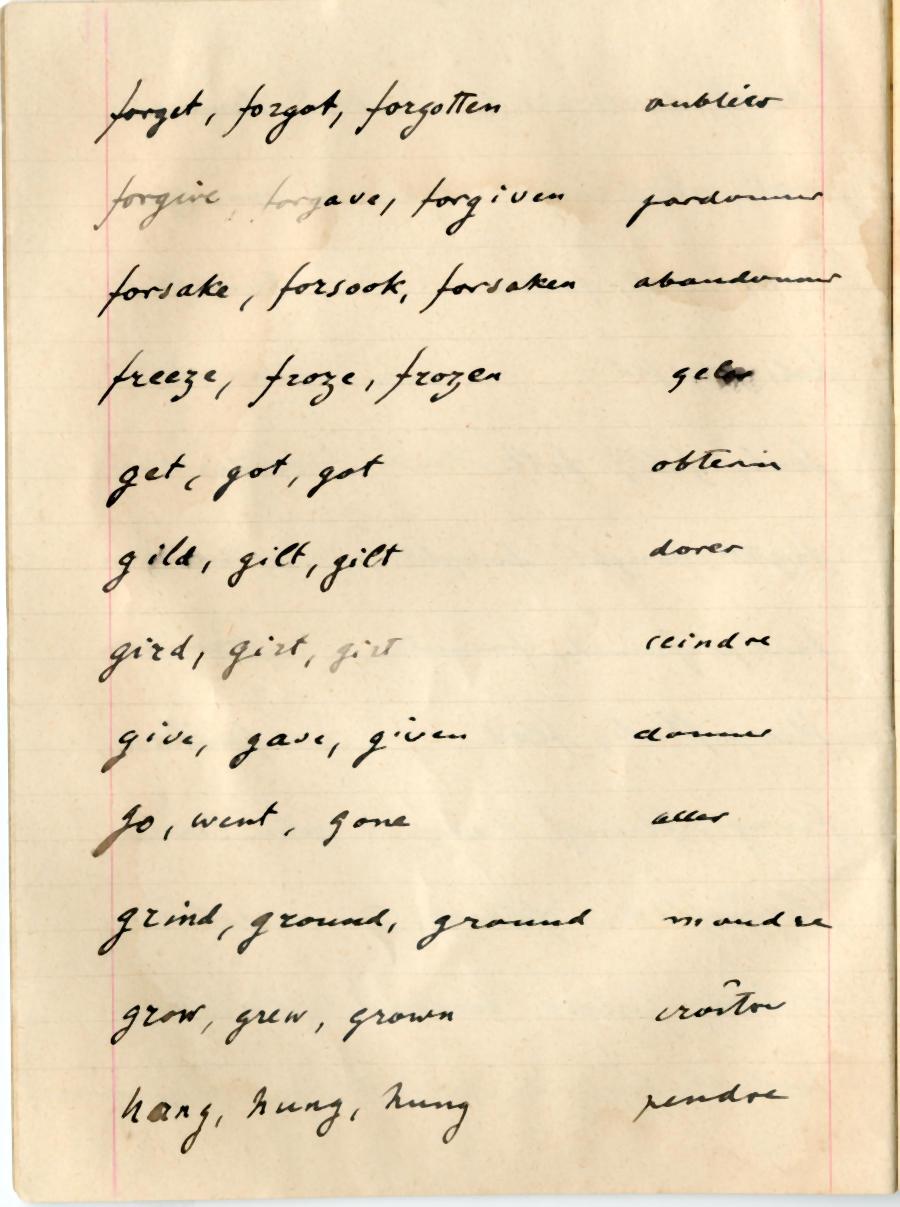 forget, forgot, forgotten oublier
forgive, forgave, forgiven pardonner
forsake, forsook, forsaken abandonner
freeze, froze, frozen geler
get, got, got obtenir
gild, gilt, gilt dorer
gird, girt, girt ceindre
give, gave, given donner
go, went, gone aller
grind, ground, ground moudre
grow, grew, grown croître
hang, hung, hung pendre